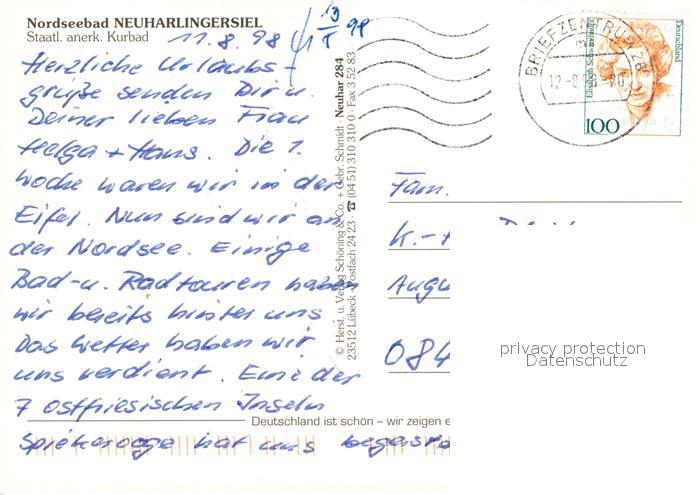 Nordseebad NEUHARLINGERSIEL
Staatl. anerk. Kurbad
11.8.98
13/8 98
Herzliche Urlaubs-
grüße senden Dir u.
Deiner lieben Frau
Helga + Hans. Die 1.
Woche waren wir in der
Eifel. Nun sind wir an
der Nordsee. Einige
Bad- u. Radtouren haben
wir bereits hinter uns.
Das Wetter haben wir
uns verdient. Eine der
7 ostfriesischen Inseln
Spiekerooge hat uns
© Herst. u. Verlag Schöning & Co. + Gebr. Schmidt · Neuhar 284
23512 Lübeck · Postfach 24 23 · ☎ (04 51) 310 310 0 · Fax 3 52 83
Deutschland ist schön – wir zeigen e
BRIEFZENTRUM 26
12-8
Deutschland
100
Fam.
K.-
Augu
084
privacy protection
Datenschutz